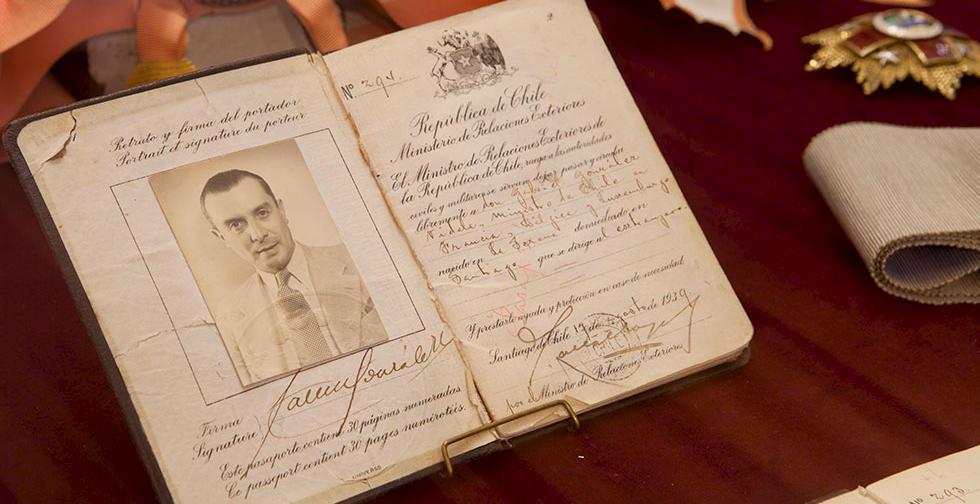 Retrato y firma del portador
Portrait et signature du porteur
Firma
Signature
Este pasaporte contiene 30 páginas numeradas
Ce passeport contient 30 pages numérotées.
UNIVERSO
Nº 294.
2
República de Chile
Ministerio de Relaciones Exteriores
El Ministro de Relaciones Exteriores de
la República de Chile, ruega a las autoridades
civiles y militares se sirvan dejar pasar y circular
libremente a don Gabriel González
Videla, Ministro de Chile en
Francia, Bélgica y Luxemburgo
nacido en La Serena domiciliado en
Santiago que se dirige al extranjero
Y prestarle ayuda y protección en caso de necesidad.
Santiago de Chile 19 de Agosto de 1939
por el Ministro de Relaciones Exteriores
Nº 293